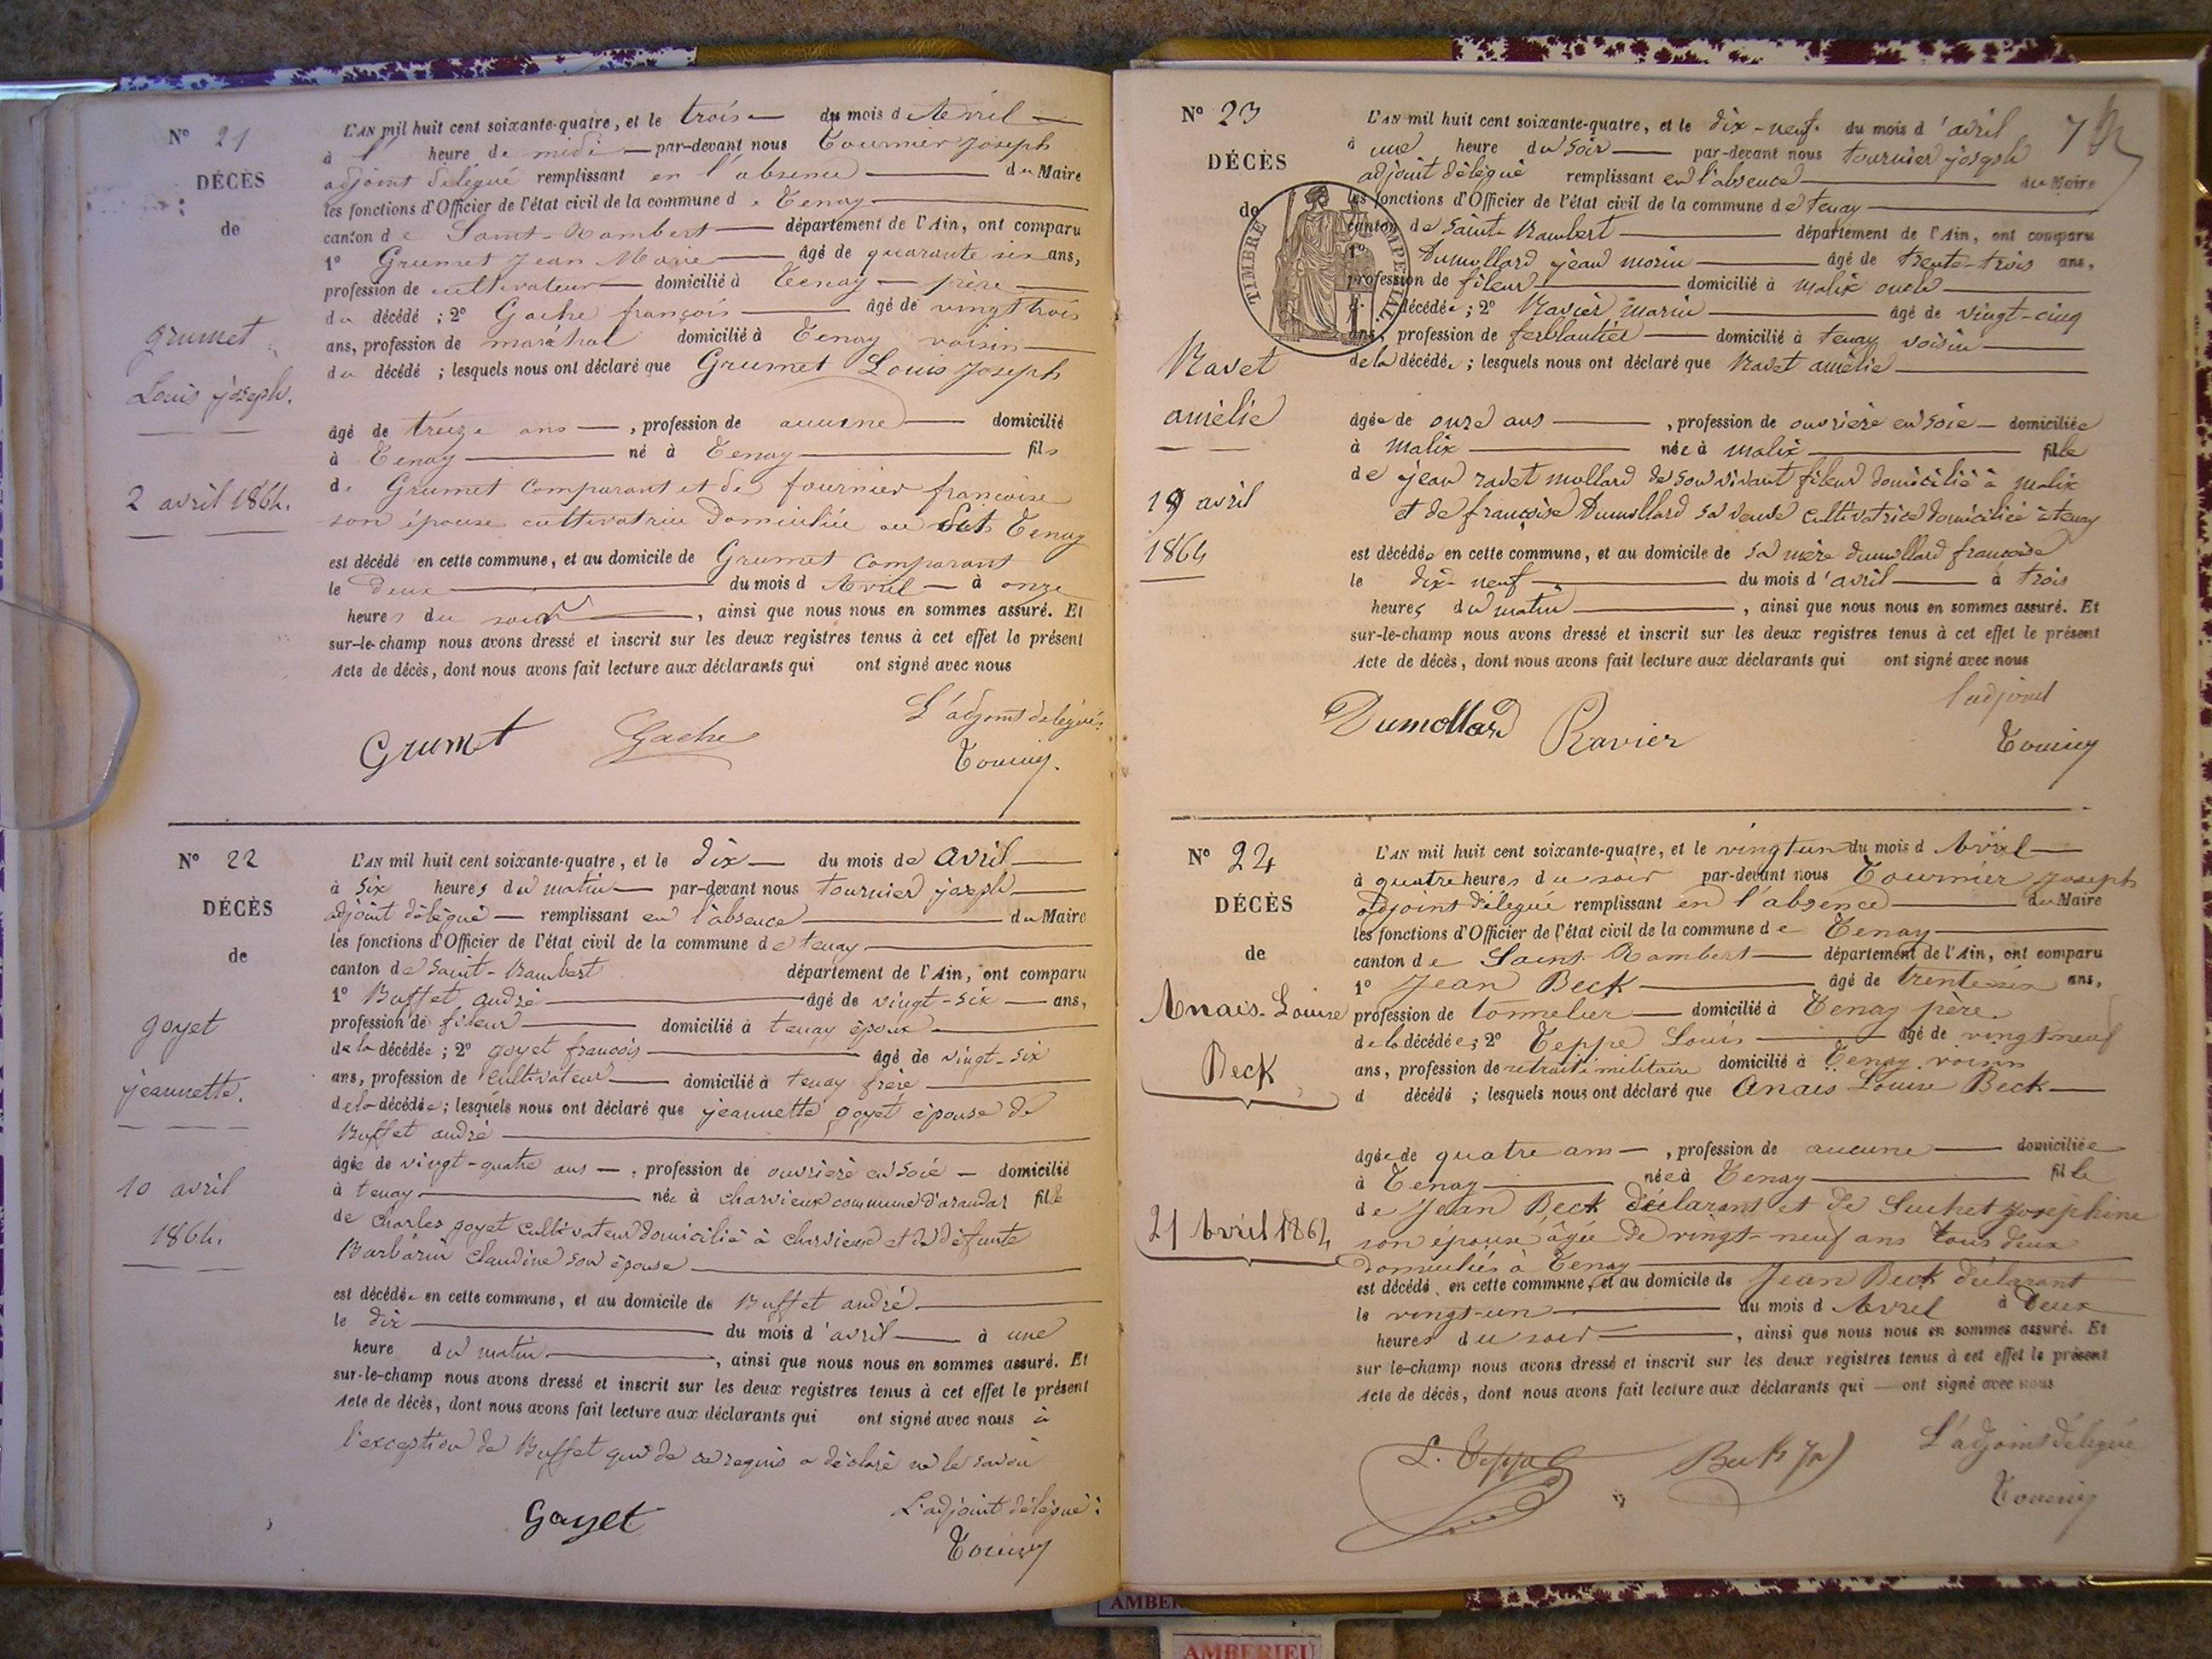 N° 21
DÉCÈS
de
Grumet
Louis joseph.
2 avril 1864.
L'AN mil huit cent soixante-quatre, et le trois du mois d Avril
à l' heure de midi par-devant nous Tournier Joseph
adjoint délégué remplissant en l'absence du Maire
les fonctions d'Officier de l'état civil de la commune de Tenay
canton de Saint-Rambert département de l'Ain, ont comparu
1° Grumet Jean Marie âgé de quarante six ans,
profession de cultivateur domicilié à Tenay père
du décédé ; 2° Gache françois âgé de vingt trois
ans, profession de maréchal domicilié à Tenay voisin
du décédé ; lesquels nous ont déclaré que Grumet Louis Joseph
âgé de treize ans , profession de aucune domicilié
à Tenay né à Tenay fils
de Grumet Comparant et de fournier françoise
son épouse cultivatrice Domiciliée au dit Tenay
est décédé en cette commune, et au domicile de Grumet Comparant
le deux du mois d Avril à onze
heures du soir , ainsi que nous nous en sommes assuré. Et
sur-le-champ nous avons dressé et inscrit sur les deux registres tenus à cet effet le présent
Acte de décès, dont nous avons fait lecture aux déclarants qui ont signé avec nous
L'adjoint délégué
Grumet Gache

N° 22
DÉCÈS
de
goyet
jeannette.
10 avril
1864.
L'AN mil huit cent soixante-quatre, et le dix du mois de avril
à six heures du matin par-devant nous tournier joseph
adjoint délégué remplissant en l'absence du Maire
les fonctions d'Officier de l'état civil de la commune de tenay
canton de saint-Rambert département de l'Ain, ont comparu
1° Buffet andré âgé de vingt-six ans,
profession de fileur domicilié à tenay époux
de la décédée ; 2° goyet françois âgé de vingt-six
ans, profession de cultivateur domicilié à tenay frère
de la décédée ; lesquels nous ont déclaré que jeannette goyet épouse de
Buffet andré
âgée de vingt-quatre ans , profession de ouvrière en soie domicilié
à tenay née à charvieux commune d'arandas fille
de charles goyet cultivateur domicilié à charvieux et de défunte
Barbarin claudine son épouse
est décédée en cette commune, et au domicile de Buffet andré
le dix du mois d'avril à une
heure du matin , ainsi que nous nous en sommes assuré. Et
sur-le-champ nous avons dressé et inscrit sur les deux registres tenus à cet effet le présent
Acte de décès, dont nous avons fait lecture aux déclarants qui ont signé avec nous à
l'exception de Buffet qui de ce requis a déclaré ne le savoir
Goyet L'adjoint délégué :

N° 23
DÉCÈS
de
TIMBRE IMPERIAL
Ravet
amélie
19 avril
1864
7
L'AN mil huit cent soixante-quatre, et le dix-neuf du mois d'avril
à une heure du soir par-devant nous tournier joseph
adjoint délégué remplissant en l'absence du Maire
les fonctions d'Officier de l'état civil de la commune de tenay
canton de saint-Rambert département de l'Ain, ont comparu
1° Dumollard jean marin âgé de trente-trois ans,
profession de fileur domicilié à malix oncle
décédée ; 2° Ravier marin âgé de vingt-cinq
ans, profession de ferblantier domicilié à tenay voisin
de la décédée ; lesquels nous ont déclaré que Ravet amélie
âgée de onze ans , profession de ouvrière en soie domiciliée
à malix née à malix fille
de jean ravet mollard de son vivant fileur domicilié à malix
et de françoise Dumollard sa veuve cultivatrice domiciliée à tenay
est décédée en cette commune, et au domicile de sa mère dumollard françoise
le dix-neuf du mois d'avril à trois
heures du matin , ainsi que nous nous en sommes assuré. Et
sur-le-champ nous avons dressé et inscrit sur les deux registres tenus à cet effet le présent
Acte de décès, dont nous avons fait lecture aux déclarants qui ont signé avec nous
l'adjoint
Dumollard Ravier

N° 24
DÉCÈS
de
Anais-Louise
Beck
21 Avril 1864
L'AN mil huit cent soixante-quatre, et le vingt un du mois d Avril
à quatre heures du soir par-devant nous Tournier Joseph
adjoint délégué remplissant en l'absence du Maire
les fonctions d'Officier de l'état civil de la commune de Tenay
canton de Saint-Rambert département de l'Ain, ont comparu
1° Jean Beck âgé de trente six ans,
profession de tonnelier domicilié à Tenay père
de la décédée ; 2° Teppe Louis âgé de vingt neuf
ans, profession de retraité militaire domicilié à Tenay voisin
d décédé ; lesquels nous ont déclaré que Anais Louise Beck
âgée de quatre ans , profession de aucune domiciliée
à Tenay née à Tenay fille
de Jean Beck déclarant et de Suchet Josephine
son épouse âgée de vingt-neuf ans tous deux
domiciliés à Tenay
est décédé en cette commune, et au domicile de Jean Beck déclarant
le vingt-un du mois d Avril à Deux
heures du soir , ainsi que nous nous en sommes assuré. Et
sur le-champ nous avons dressé et inscrit sur les deux registres tenus à cet effet le présent
Acte de décès, dont nous avons fait lecture aux déclarants qui ont signé avec nous
L'adjoint délégué
L. Teppe Beck
AMBER
AMBERIEU